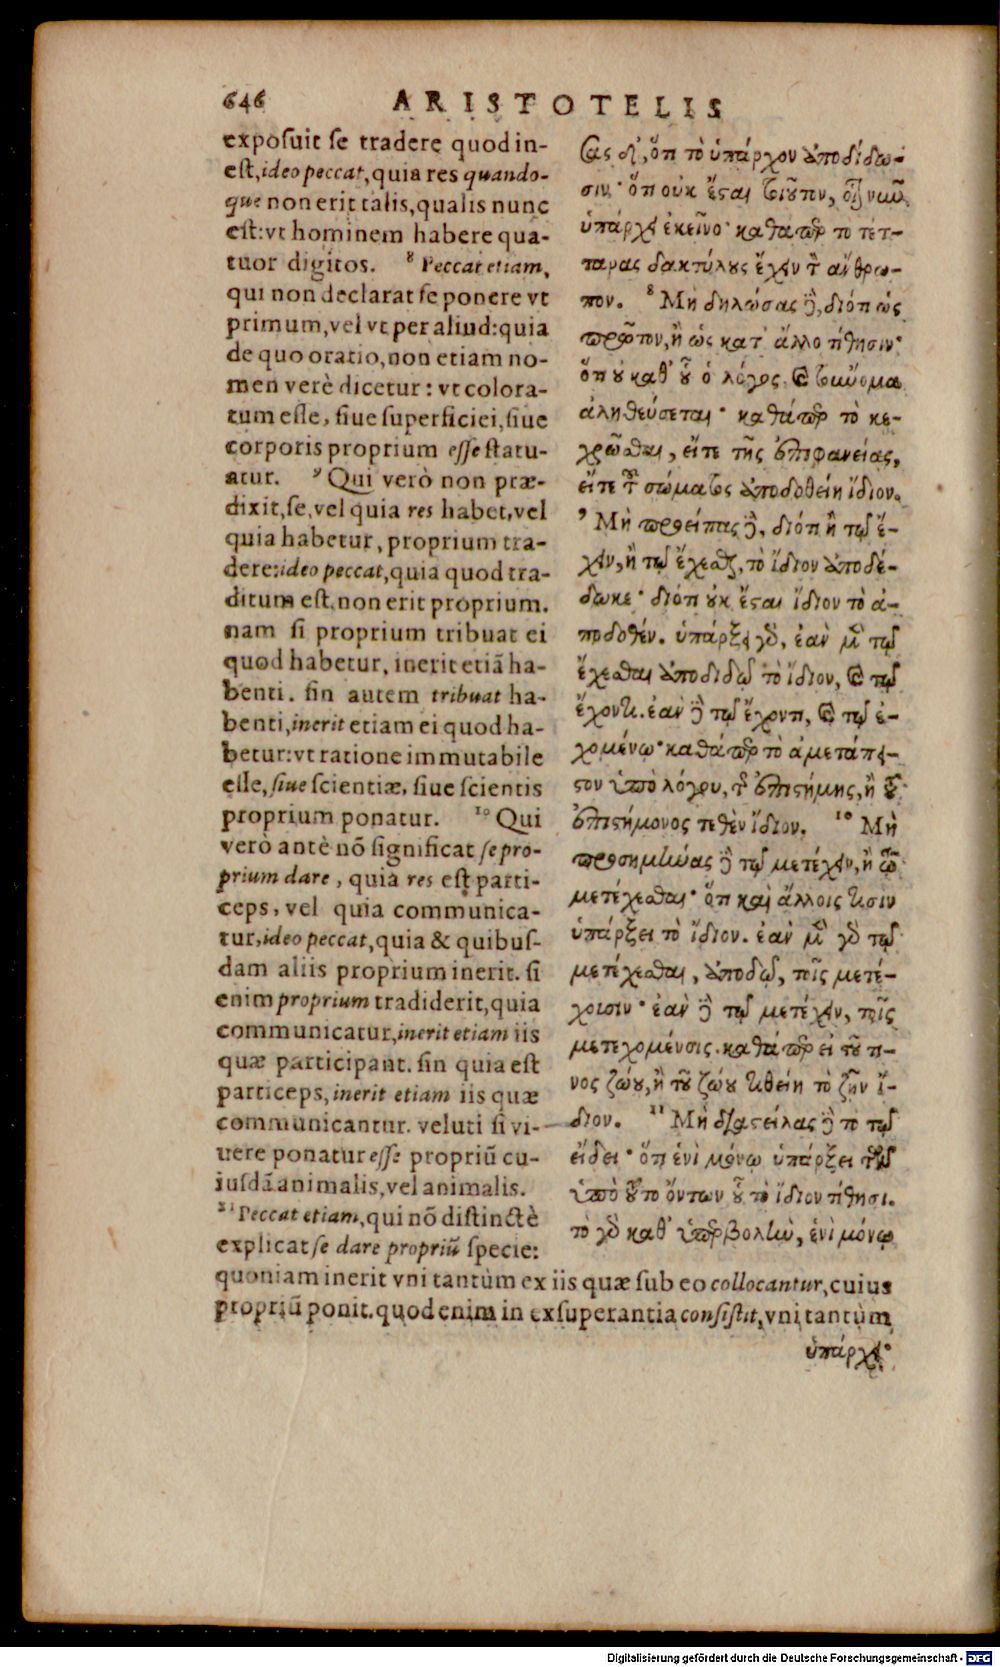 646
ARISTOTELIS
exposuit se tradere quod in-
est, ideo peccat, quia res quando-
que non erit talis, qualis nunc
est: vt hominem habere qua-
tuor digitos. 8 Peccat etiam,
qui non declarat se ponere vt
primum, vel vt per aliud: quia
de quo oratio, non etiam no-
men verè dicetur: vt colora-
tum esse, siue superficiei, siue
corporis proprium esse statu-
atur. 9 Qui verò non præ-
dixit, se, vel quia res habet, vel
quia habetur, proprium tra-
dere: ideo peccat, quia quod tra-
ditum est, non erit proprium.
nam si proprium tribuat ei
quod habetur, inerit etiã ha-
benti. sin autem tribuat ha-
benti, inerit etiam ei quod ha-
betur: vt ratione immutabile
esse, siue scientiæ, siue scientis
proprium ponatur. 10 Qui
verò antè nõ significat se pro-
prium dare, quia res est parti-
ceps, vel quia communica-
tur, ideo peccat, quia & quibus-
dam aliis proprium inerit. si
enim proprium tradiderit, quia
communicatur, inerit etiam iis
quæ participant. sin quia est
particeps, inerit etiam iis quæ
communicantur. veluti si vi-
uere ponatur esse propriũ cu-
iusdã animalis, vel animalis.
11 Peccat etiam, qui nõ distinctè
explicat se dare propriũ specie:
σας δ', ὅτι τὸ ὑπάρχον ἀποδίδω-
σιν· ὅτι οὐκ ἔσται τοιοῦτον, οἷον νῦν
ὑπάρχει ἐκεῖνο· καθάπερ τὸ τέτ-
ταρας δακτύλους ἔχειν τὸν ἄνθρω-
πον. 8 Μὴ δηλώσας δὲ, διότι ὡς
πρῶτον, ἢ ὡς κατ' ἄλλο τίθησιν·
ὅτι οὐ καθ' οὗ ὁ λόγος, καὶ τοὔνομα
ἀληθεύσεται· καθάπερ τὸ κε-
χρῶσθαι, εἴτε τῆς ἐπιφανείας,
εἴτε τοῦ σώματος ἀποδοθείη ἴδιον.
9 Μὴ προείπας δὲ, διότι ἢ τῷ ἔ-
χειν, ἢ τῷ ἔχεσθαι, τὸ ἴδιον ἀποδέ-
δωκε· διότι οὐκ ἔσται ἴδιον τὸ ἀ-
ποδοθέν. ὑπάρξει γὰρ, ἐὰν μὲν τῷ
ἔχεσθαι ἀποδιδῷ τὸ ἴδιον, καὶ τῷ
ἔχοντι. ἐὰν δὲ τῷ ἔχοντι, καὶ τῷ ἐ-
χομένῳ· καθάπερ τὸ ἀμετάπει-
στον ὑπὸ λόγου, τῆς ἐπιστήμης, ἢ τοῦ
ἐπιστήμονος τεθὲν ἴδιον. 10 Μὴ
προσημήνας δὲ τῷ μετέχειν, ἢ τῷ
μετέχεσθαι· ὅτι καὶ ἄλλοις τισὶν
ὑπάρξει τὸ ἴδιον. ἐὰν μὲν γὰρ τῷ
μετέχεσθαι, ἀποδῷ, τοῖς μετέ-
χουσιν· ἐὰν δὲ τῷ μετέχειν, τοῖς
μετεχομένοις. καθάπερ εἰ τοῦ τι-
νος ζώου, ἢ τοῦ ζώου τεθείη τὸ ζῆν ἴ-
διον. 11 Μὴ διαστείλας δὲ τὸ τῷ
εἴδει· ὅτι ἑνὶ μόνῳ ὑπάρξει τῶν
ὑπὸ τοῦτο ὄντων οὗ τὸ ἴδιον τίθησι.
τὸ γὰρ καθ' ὑπερβολὴν, ἑνὶ μόνῳ
quoniam inerit vni tantùm ex iis quæ sub eo collocantur, cuius
propriũ ponit. quod enim in exsuperantia consistit, vni tantùm
ὑπάρχει·
Digitalisierung gefördert durch die Deutsche Forschungsgemeinschaft - DFG